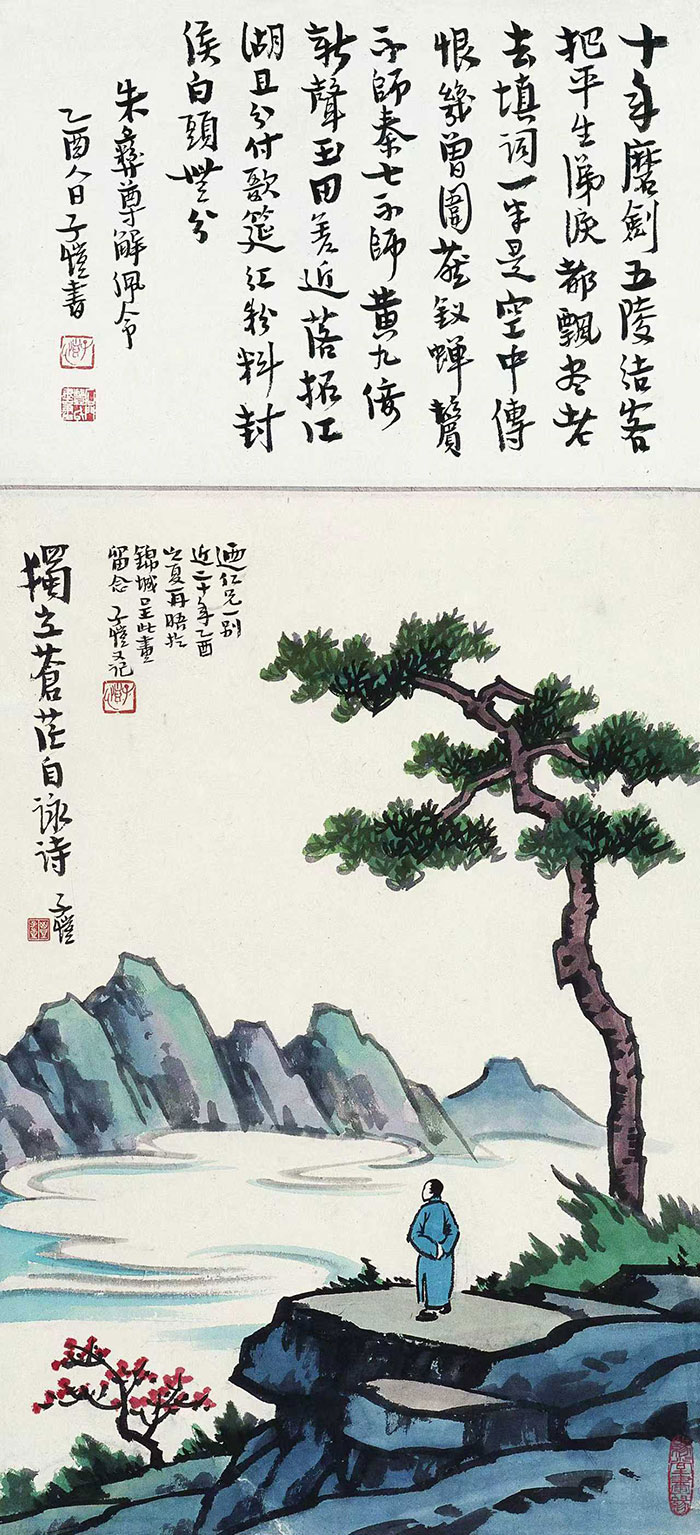 十年磨劍五陵结客
把平生涕淚都飄盡老
去填词一半是空中傳
恨幾曾圍燕釵蟬鬢
不師秦七不師黄九倚
新聲玉田差近落拓江
湖且分付歌筵红粉料封
侯白頭無分
朱彝尊解佩令
乙酉人日子愷書
迺仁兄一别
近二十年乙酉
之夏再晤於
錦城呈此畫
留念 子愷又记
獨立蒼茫自詠诗
子愷